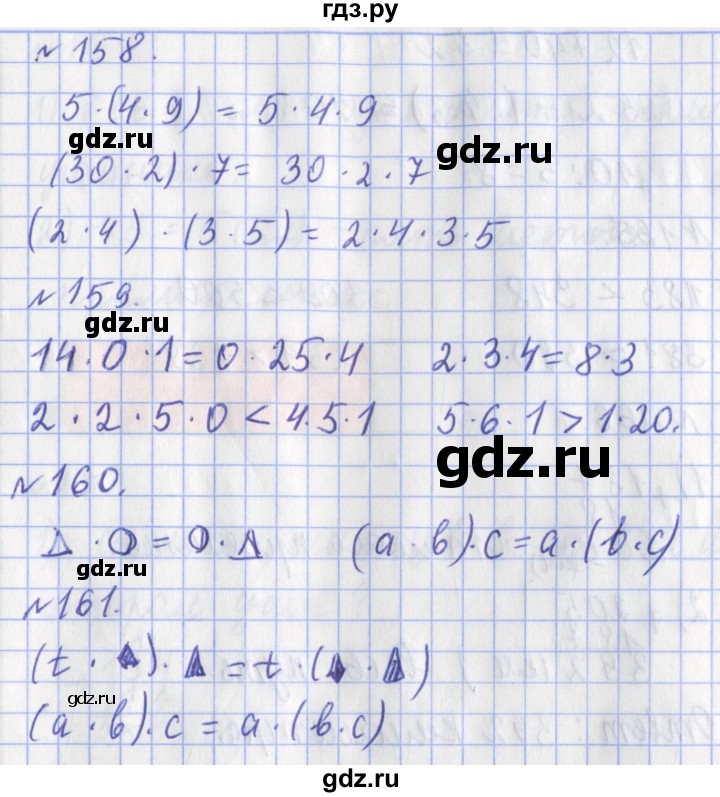 гдз.ру
№158.
5·(4·9) = 5·4·9
gdz.ru
gdz.ru
(30·2)·7= 30·2·7
(2·4)·(3·5)= 2·4·3·5
№159.
gdz.ru
14·0·1=0·25·4 2·3·4=8·3
2·2·5·0<4·5·1 5·6·1>1·20.
gdz.ru
№160.
Δ·О=О·Δ (а·в)·с=а·(b·с)
gdz.ru
gdz.ru
№161.
(t·▲)·▲=t·(▲·▲)
gdz.ru
(а·в)·с=а·(в·с)
gdz.ru
gdz.ru